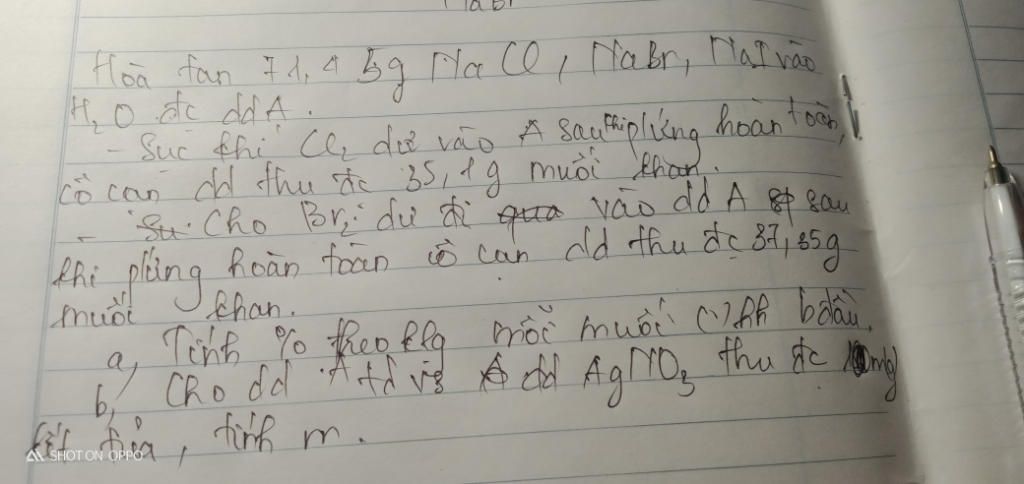 Hoà tan 71,45g NaCl, NaBr, NaI vào
H₂O đc ddA.
- Sục khí Cl₂ dư vào A sau khi p/ứng hoàn toàn,
cô cạn dd thu đc 35,1g muối khan.
- Cho Br₂ dư đi vào dd A sau
khi p/ứng hoàn toàn cô cạn dd thu đc 37,35g
muối khan.
a, Tính % theo klg mỗi muối () hh b đầu.
b, Cho dd A td vs dd AgNO₃ thu đc m(g)
kết tủa, tính m.
SHOT ON OPPO